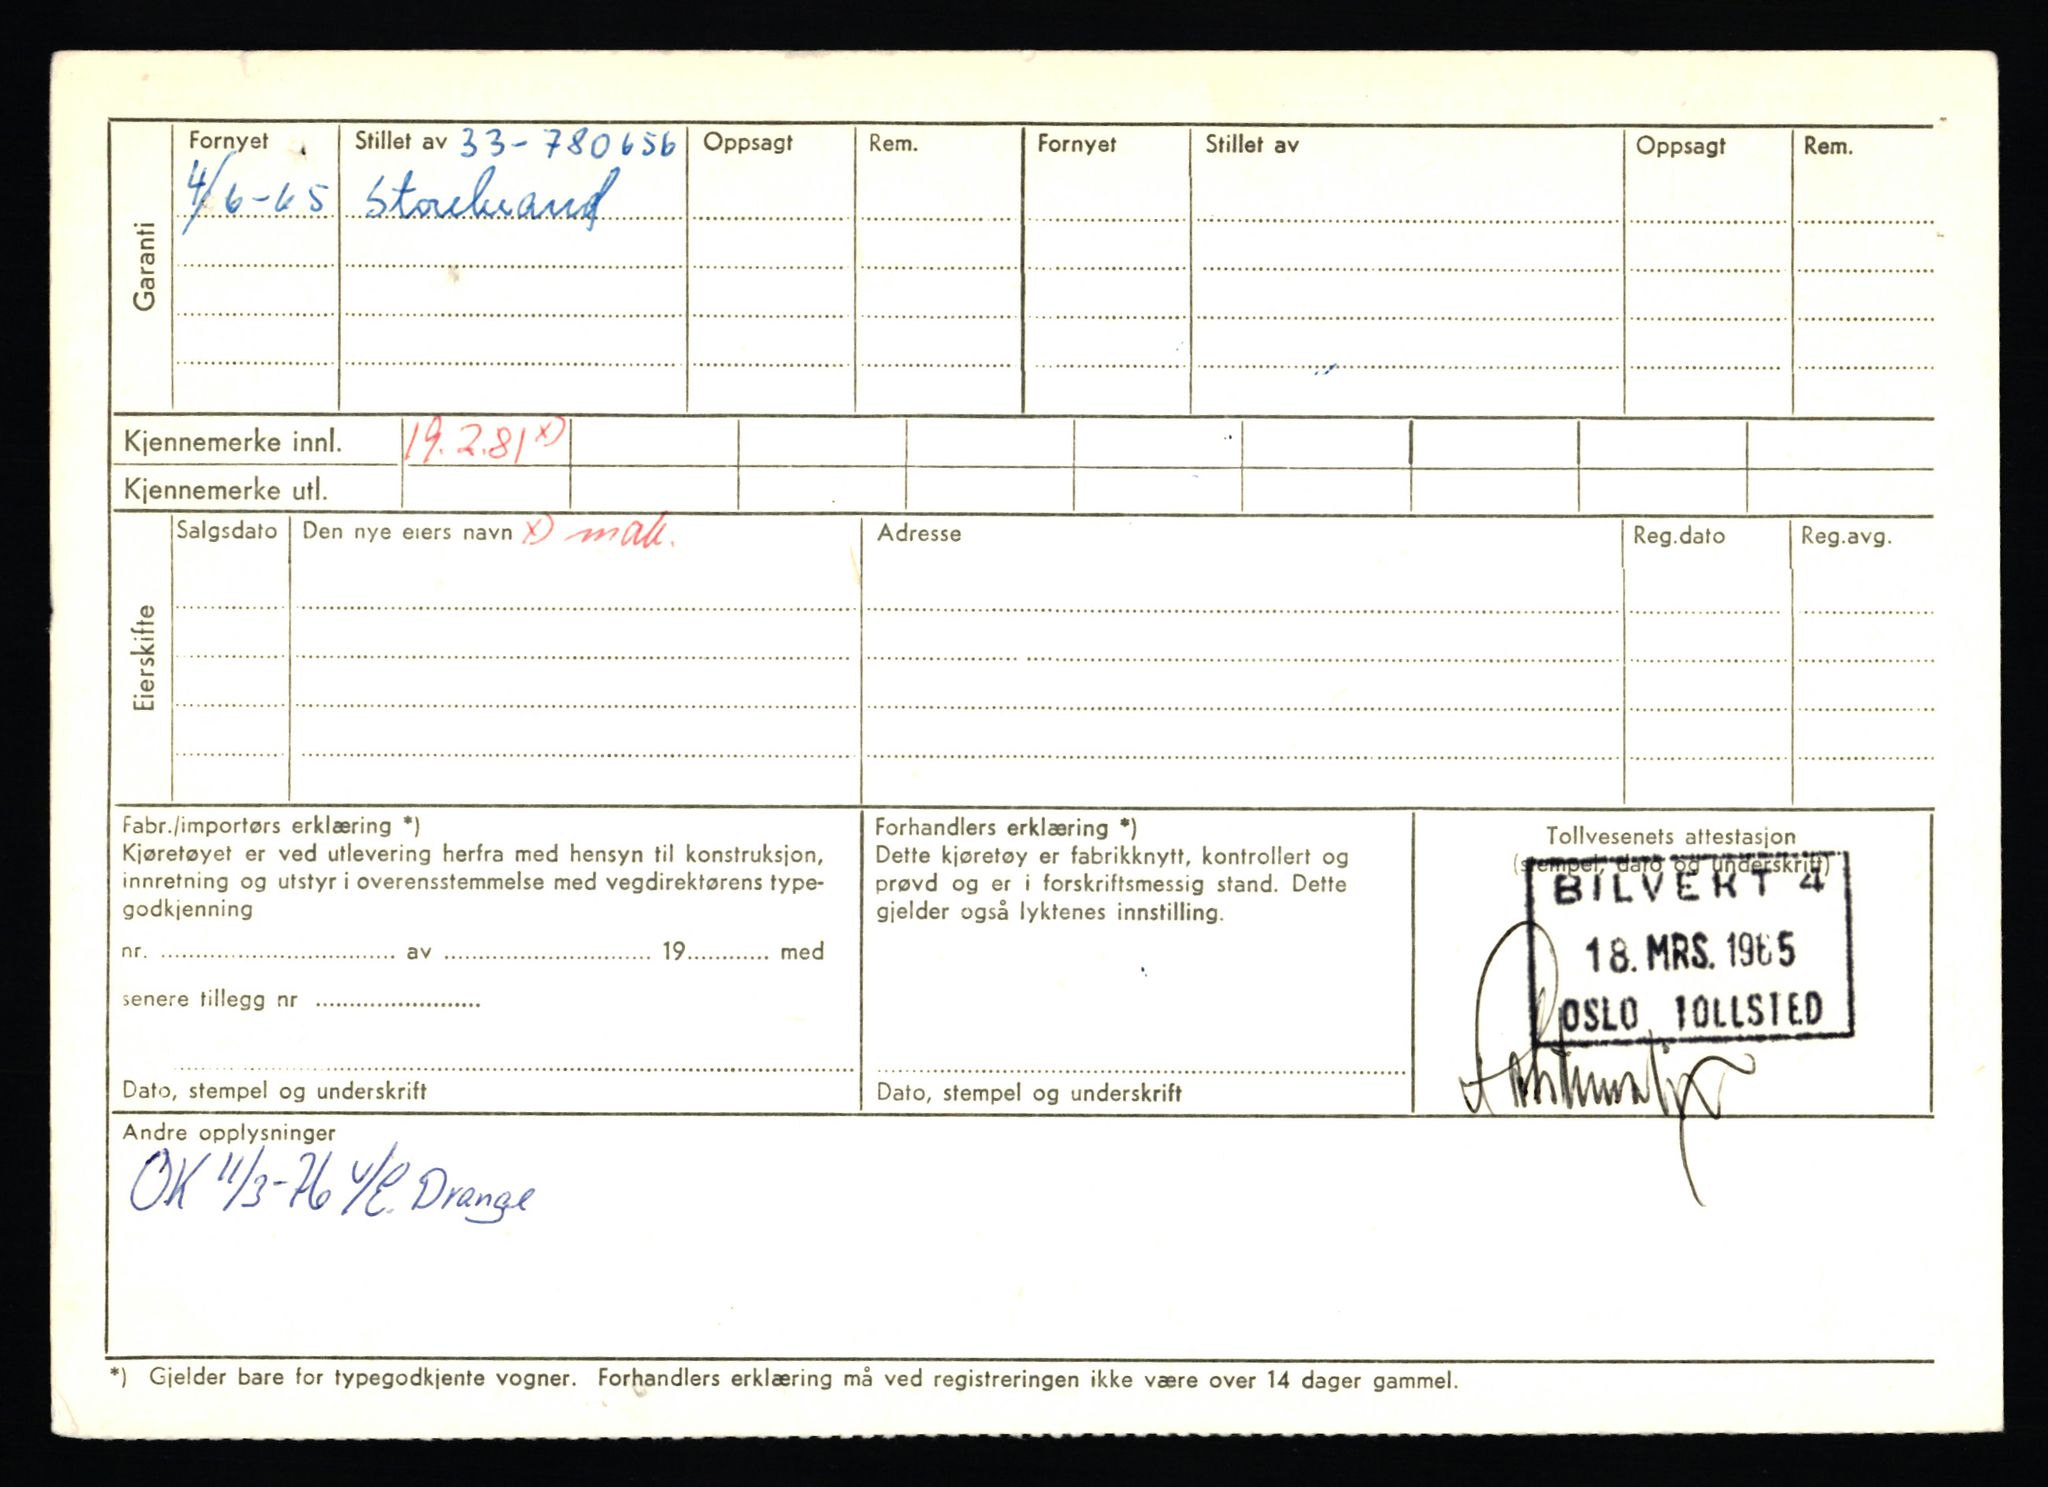 Garanti
Fornyet Stillet av 33-780656 Oppsagt Rem. Fornyet Stillet av Oppsagt Rem.
4/6-65 Storebrand
Kjennemerke innl. 19.2.81 x)
Kjennemerke utl.
Eierskifte
Salgsdato Den nye eiers navn x) mak. Adresse Reg.dato Reg.avg.
Fabr./importørs erklæring *)
Kjøretøyet er ved utlevering herfra med hensyn til konstruksjon,
innretning og utstyr i overensstemmelse med vegdirektørens type-
godkjenning
nr. .......... av .......... 19.......... med
senere tillegg nr ..........
Dato, stempel og underskrift
Forhandlers erklæring *)
Dette kjøretøy er fabrikknytt, kontrollert og
prøvd og er i forskriftsmessig stand. Dette
gjelder også lyktenes innstilling.
Dato, stempel og underskrift
Tollvesenets attestasjon
(stempel, dato og underskrift)
BILVEKT 4
18. MRS. 1965
OSLO TOLLSTED
Andre opplysninger
OK 11/3-76 v/E. Drange
*) Gjelder bare for typegodkjente vogner. Forhandlers erklæring må ved registreringen ikke være over 14 dager gammel.